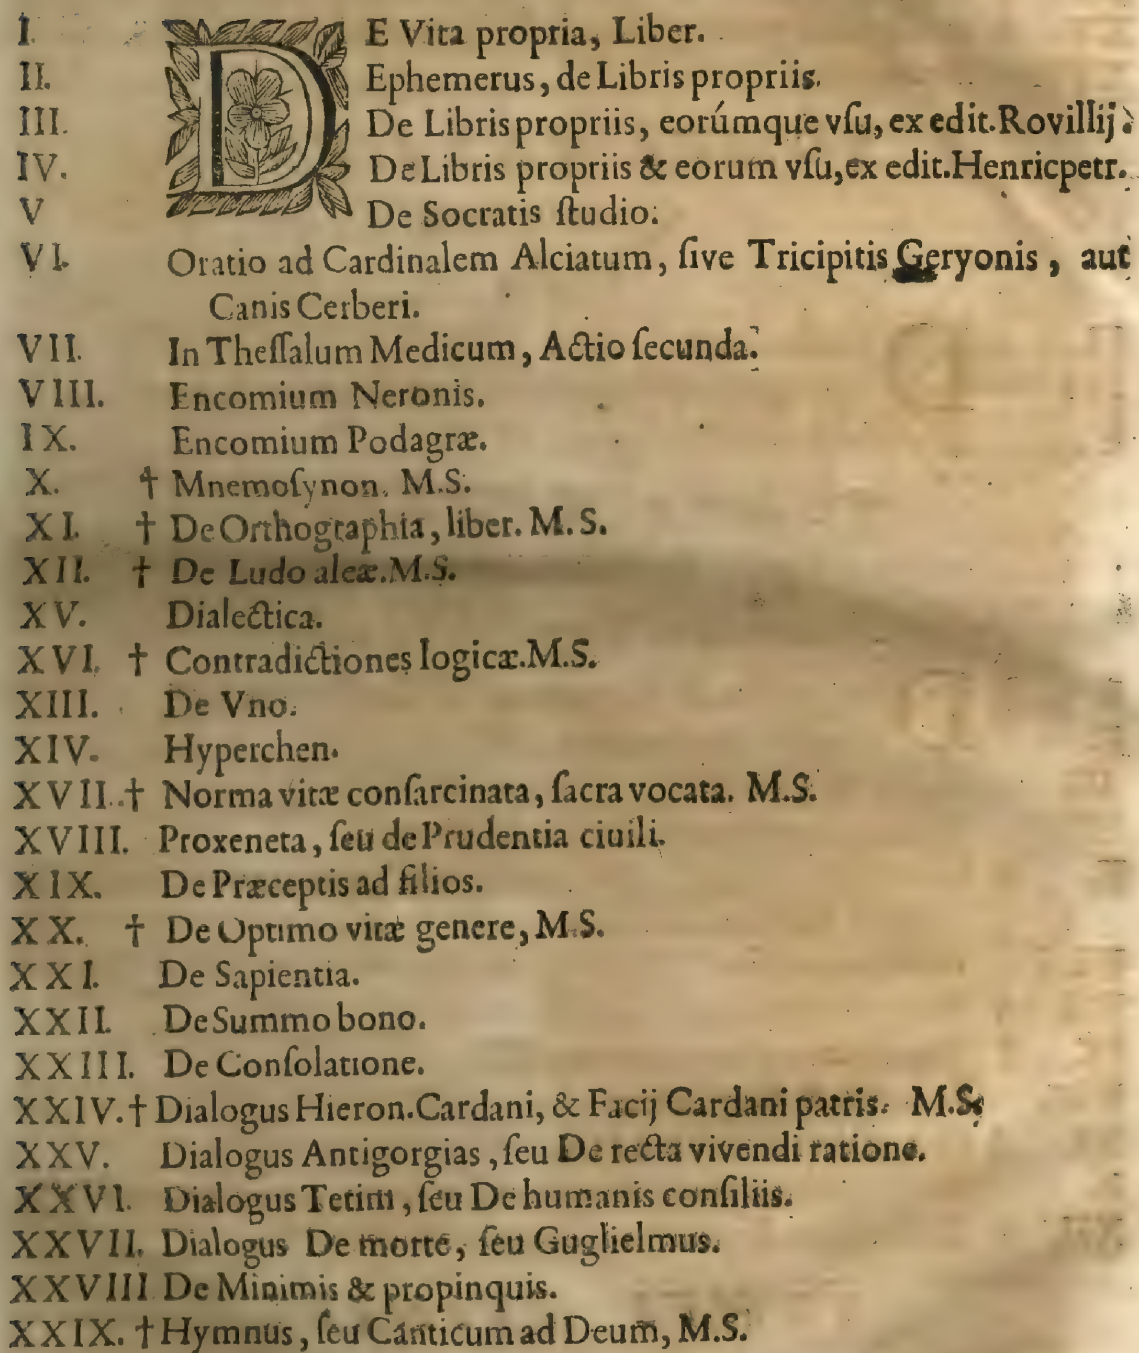 I. DE Vita propria, Liber.
II. Ephemerus, de Libris propriis.
III. De Libris propriis, eorúmque vſu, ex edit. Rovillij.
IV. De Libris propriis & eorum vſu, ex edit. Henricpetr.
V De Socratis ſtudio.
VI. Oratio ad Cardinalem Alciatum, ſive Tricipitis Geryonis, aut
Canis Cerberi.
VII. In Theſſalum Medicum, Actio ſecunda.
VIII. Encomium Neronis.
IX. Encomium Podagræ.
X. † Mnemoſynon. M.S.
XI. † De Orthographia, liber. M. S.
XII. † De Ludo aleæ. M.S.
XV. Dialectica.
XVI. † Contradictiones logicæ. M.S.
XIII. De Vno.
XIV. Hyperchen.
XVII. † Norma vitæ conſarcinata, ſacra vocata. M.S.
XVIII. Proxeneta, ſeu de Prudentia ciuili.
XIX. De Præceptis ad filios.
XX. † De Optimo vitæ genere, M.S.
XXI. De Sapientia.
XXII. De Summo bono.
XXIII. De Conſolatione.
XXIV. † Dialogus Hieron. Cardani, & Facij Cardani patris. M.S.
XXV. Dialogus Antigorgias, ſeu De recta vivendi ratione.
XXVI. Dialogus Tetim, ſeu De humanis conſiliis.
XXVII. Dialogus De morte, ſeu Guglielmus.
XXVIII De Minimis & propinquis.
XXIX. † Hymnus, ſeu Canticum ad Deum, M.S.